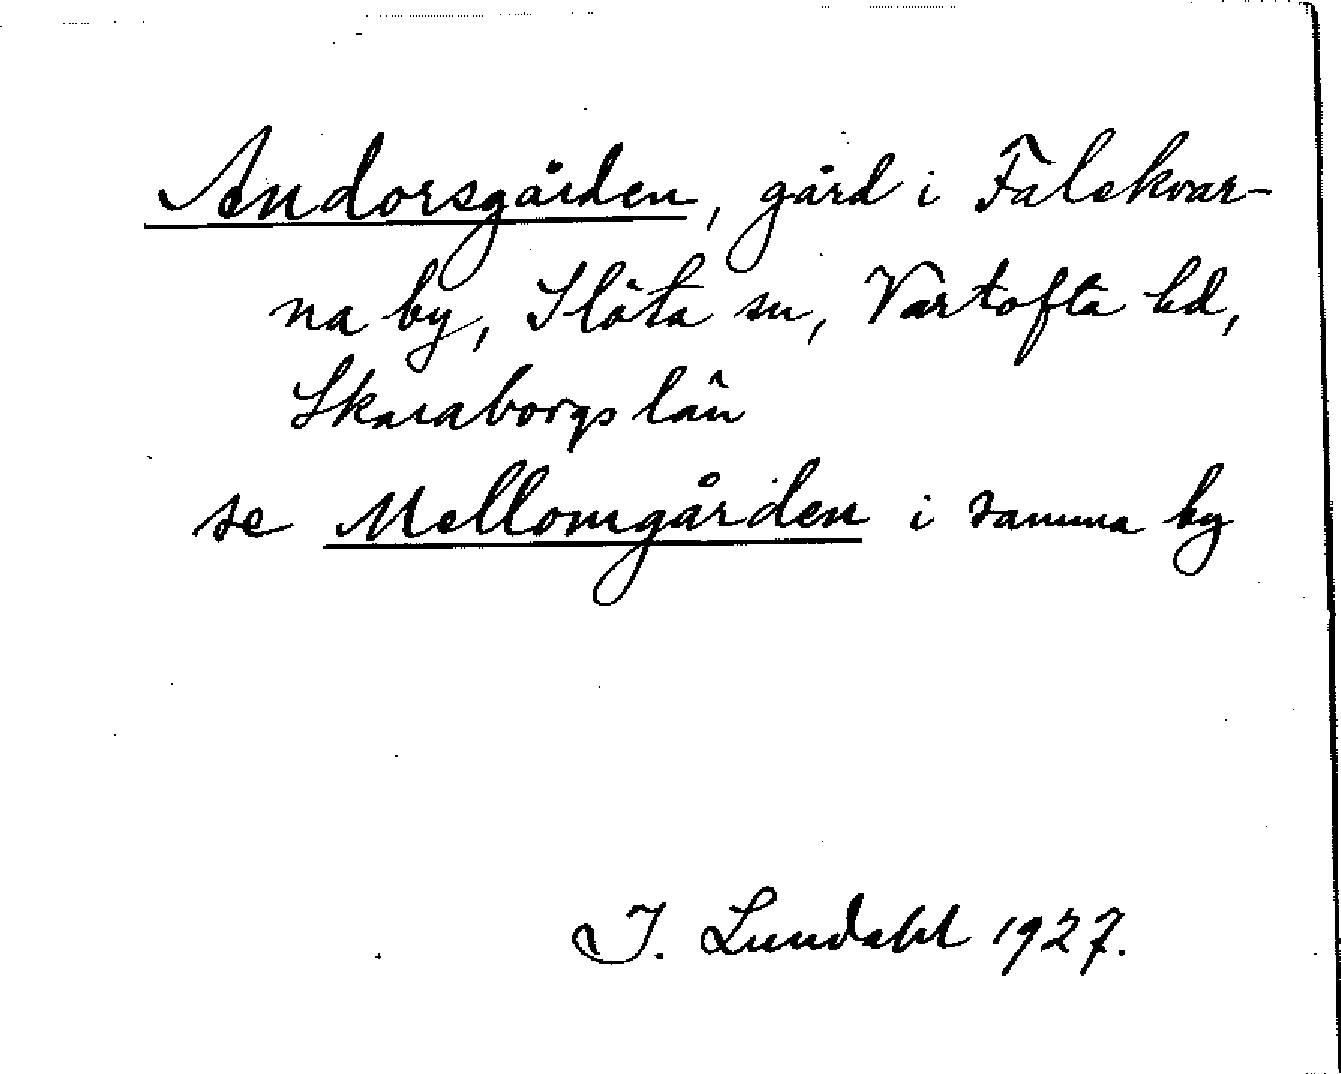 Andorsgården, gård i Falekvar-
na by, Slöta sn, Vartofta hd,
Skaraborgs län
se Mellomgården i samma by
I. Lundahl 1927.